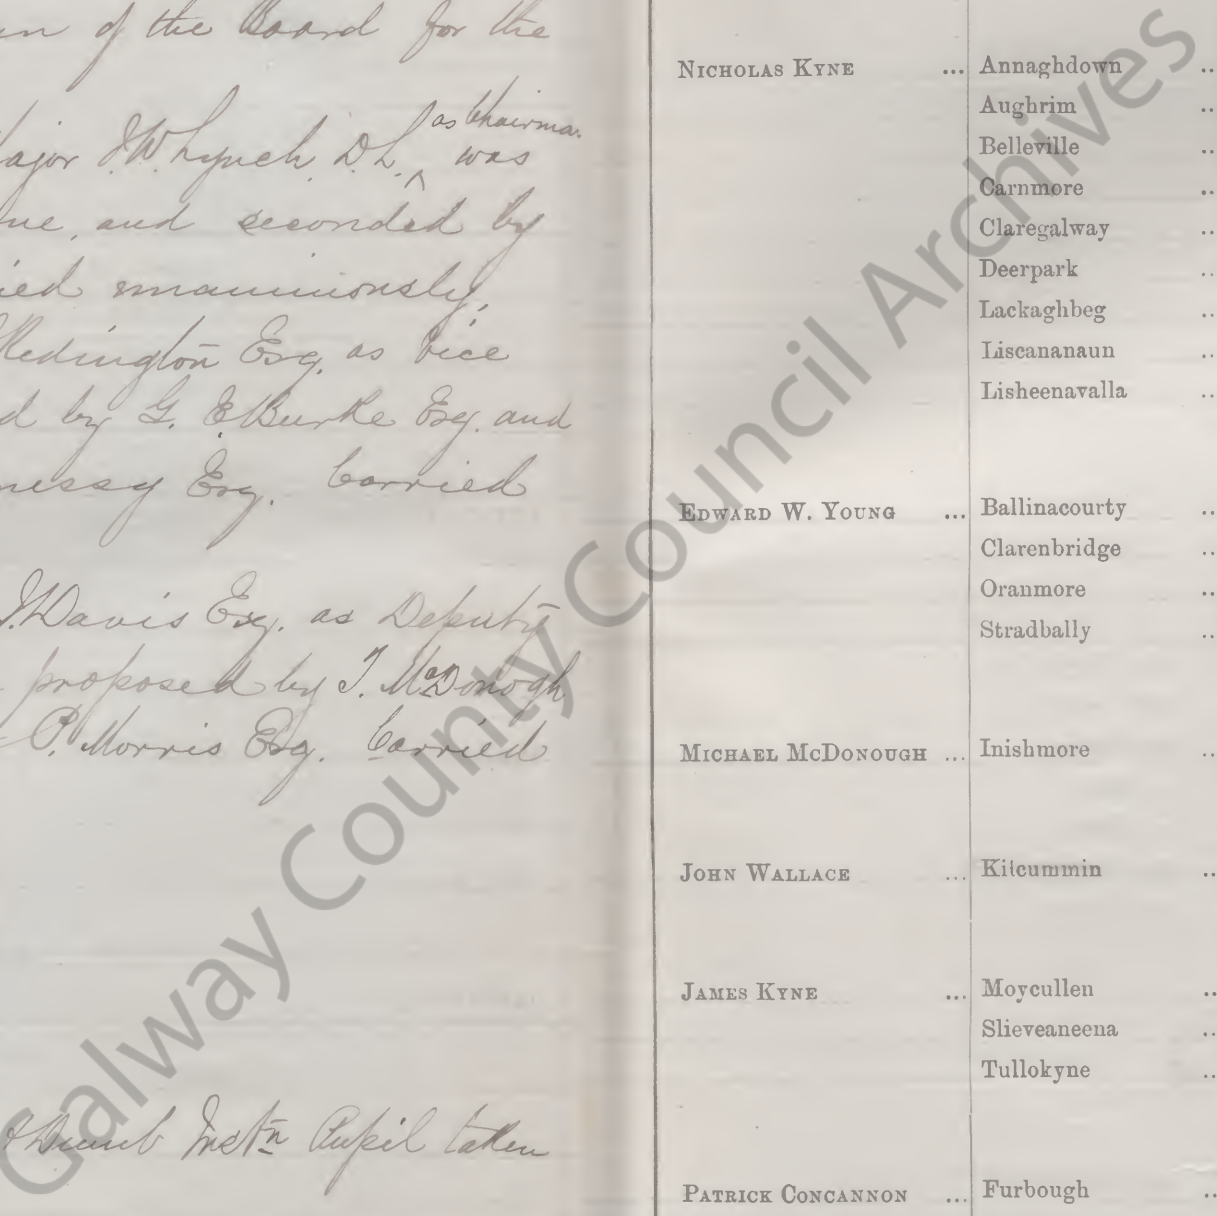 of the Board for the
as Chairma.
ajor J W Lynch, D.L. ^ was
ne, and seconded by
ied unanimously,
Redington Esq. as Vice
d by G. E Burke Esq. and
nessy Esq. Carried
J. Davis Esq. as Deputy
proposed by T. McDonogh
P. Morris Esq. Carried
& Dumb Instn Pupil taken
Nicholas Kyne ... Annaghdown ..
Aughrim ..
Belleville ..
Carnmore ..
Claregalway ..
Deerpark ..
Lackaghbeg ..
Liscananaun ..
Lisheenavalla ..
Edward W. Young ... Ballinacourty ..
Clarenbridge ..
Oranmore ..
Stradbally ..
Michael McDonough ... Inishmore ..
John Wallace ... Kilcummin ..
James Kyne ... Moycullen ..
Slieveaneena ..
Tullokyne ..
Patrick Concannon ... Furbough ..
Galway County Council Archives